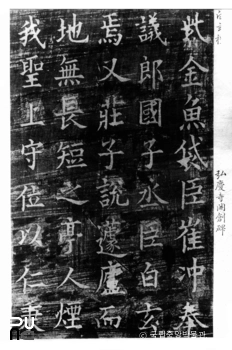 弘慶寺開創碑
紫金魚袋臣崔冲奉
議郎國子丞臣白玄
焉又莊子說蘧廬而
地無長短之亭人煙
我聖上守位以仁秉
국립중앙박물관